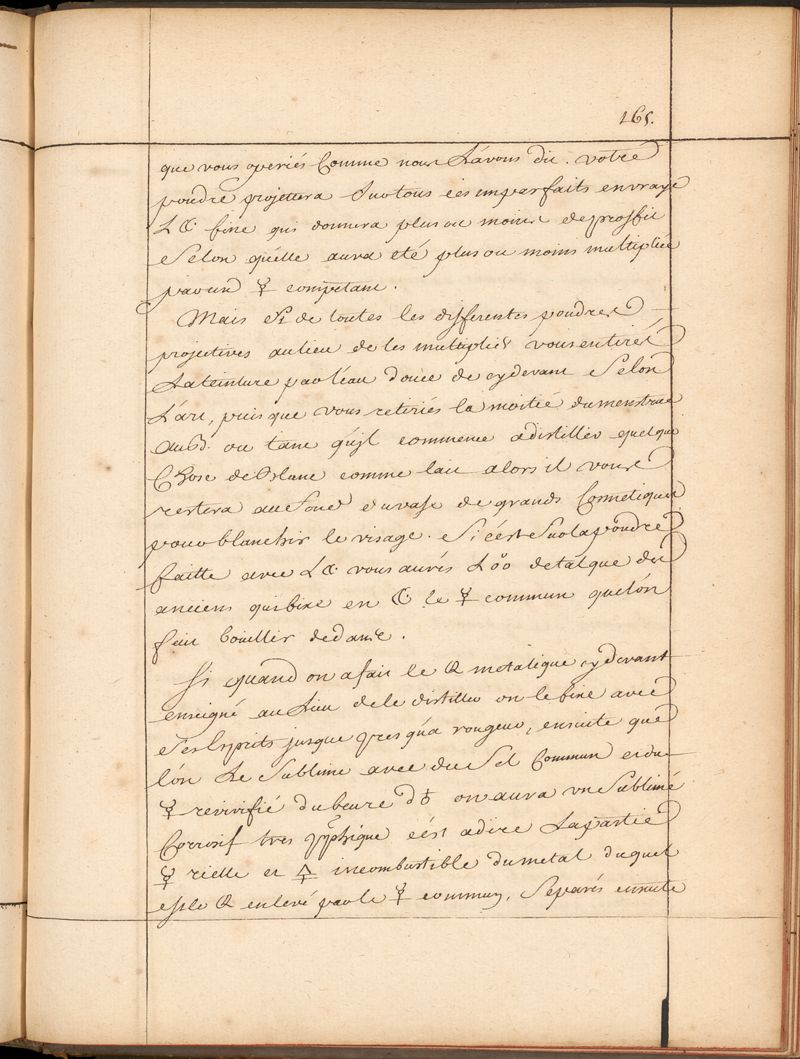 165.
que vous operiés Comme nous L'avons dit. votre
poudre projettera Sur tous les imparfaits en vraye
L ☾ fine qui donnera plus ou moins de proffit
Selon qu'elle aura eté plus ou moins multipliée
par un ☿ competant.
Mais Si de toutes les differentes poudres
projectives au lieu de les multiplier vous entirés
La teinture par l'eau douce de cy devant Selon
L'art, puis que vous retiriés la moitié du menstrue
au B. ou tant qu'jl commence a distiller quelque
Chose de Blanc comme lait alors il vous
restera au fond du vase de grands Cosmetiques
pour blanchir le visage. Si c'est Sur la poudre
faitte avec L ☾ vous aurés L'oo de talque des
anciens qui fixe en ☾ le ☿ commun que l'ón
fait boüiller dedans.
Si quand on a fait le metalique cy devant
enseigné au Lieu de le distiller on le fixe avec
Ses Esprits jusque presqu'a rougeur, ensuite que
l'ón Le Sublime avec du Sel Commun et du
☿ revivifié du beure d'♁ on aura un Sublimé
Corrosif tres phique c'est a dire La partie
☿rielle et 🜍 incombustible du metal duquel
est le enlevé par le ☿ commun, Separés ensuite